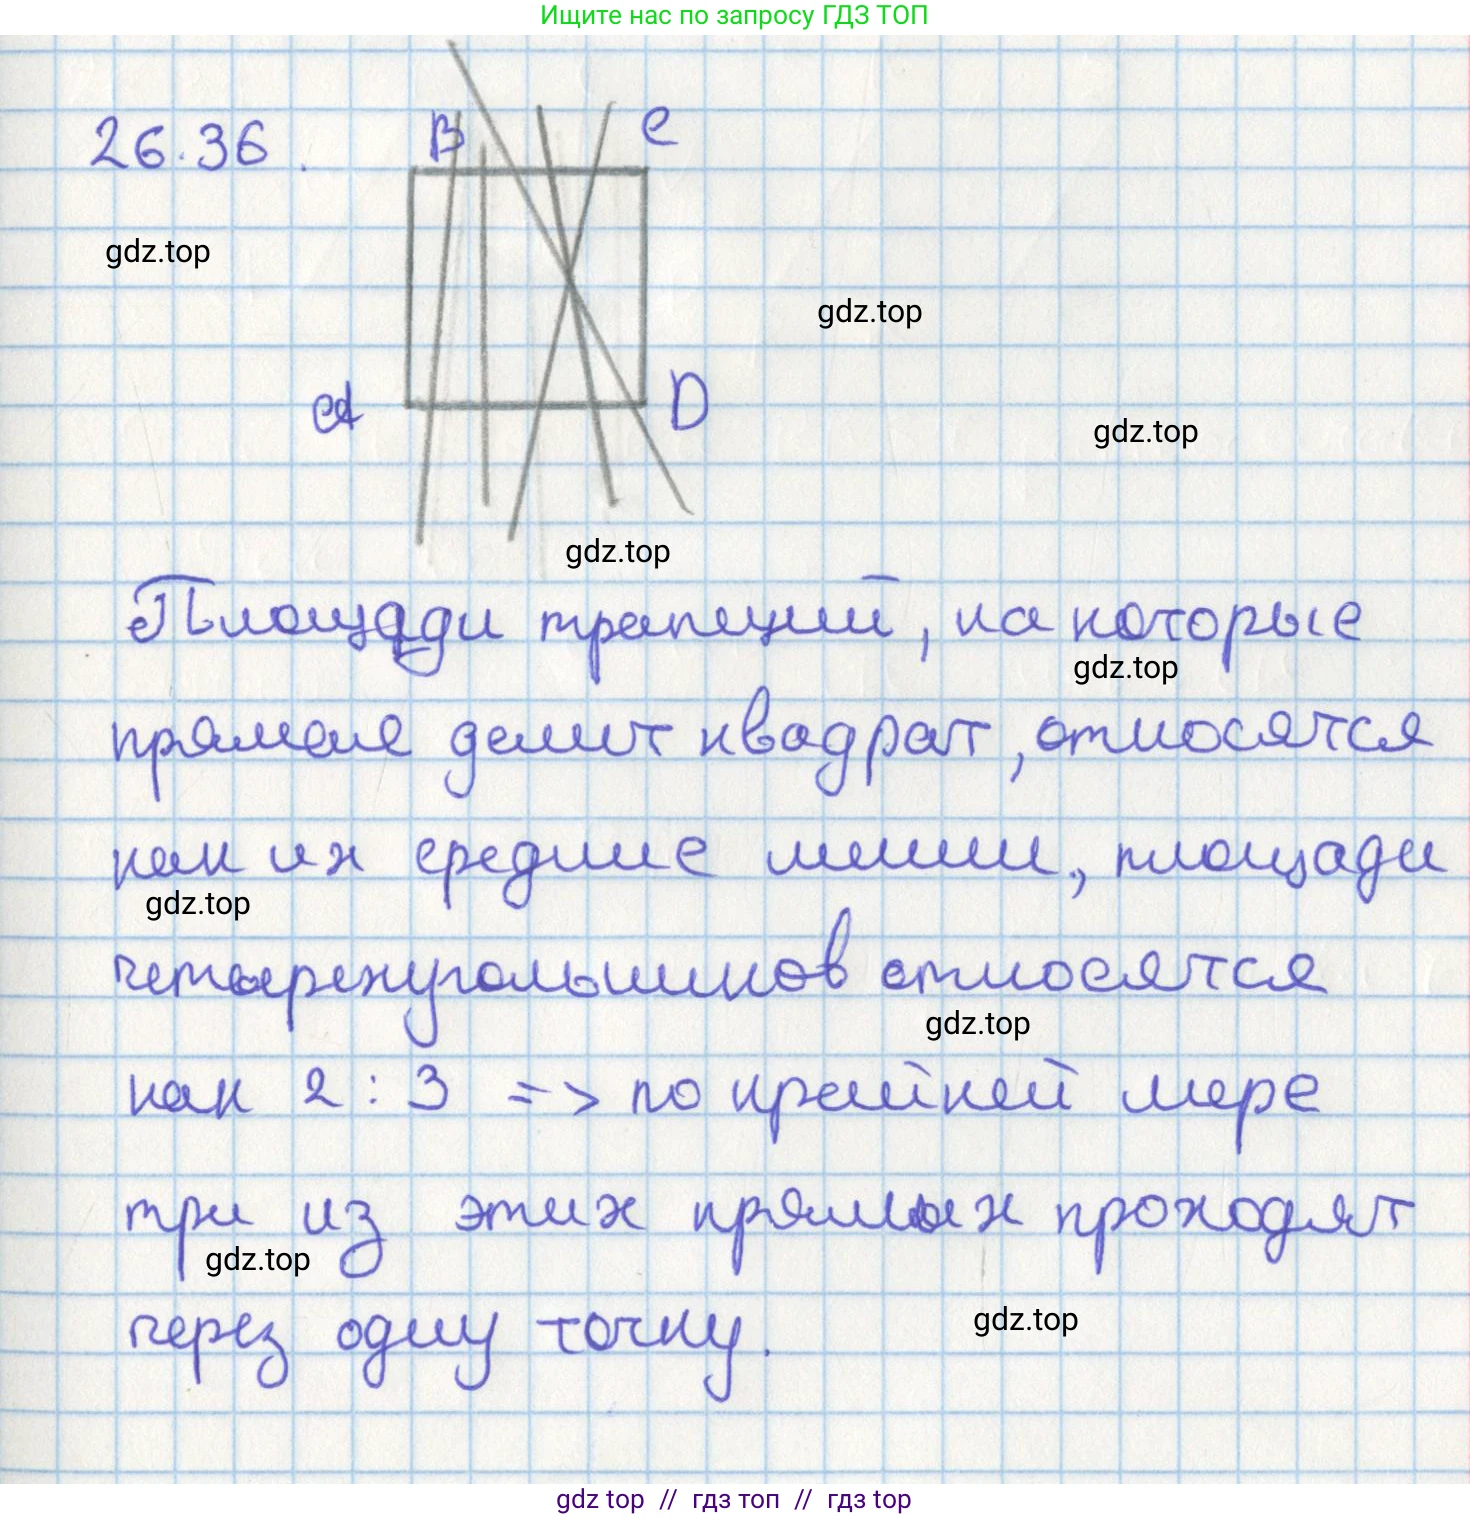 Ищите нас по запросу ГДЗ ТОП
26.36.
B
C
gdz.top
gdz.top
A
D
gdz.top
gdz.top
Площади трапеций, на которые
gdz.top
прямые делит квадрат, относятся
как их средние линии, площади
gdz.top
четырехугольников относятся
gdz.top
как 2 : 3 => по крайней мере
три из этих прямых проходят
gdz.top
через одну точку.
gdz.top
gdz top // гдз топ // гдз top